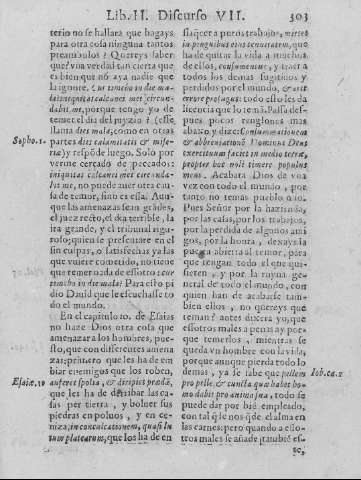 Lib. II. Discurso VII. 303
terio no se hallara que hagays
para otra cosa ninguna tantos
preambulos? Quereys saber
que? voa verdad tan cierta que
es bien que nō aya nadie que
la ignore. Cur timebo in die ma-
la? iniquitas calcanei mei circun-
dabit me, porque tengo yo de
temer el dia del juyzio? (esse,
llama dies mala, como en otras
partes dies calamitatis & mise-
riæ) y respōde luego. Solo por
verme cercado de peccado:
iniquitas calcanei mei circunda-
bit me, no puede auer otra cau-
sa de temor, sino es essa: Aun-
que las amenazas sean grādes,
el juez recto, el dia terrible, la
ira grande, y el tribunal rigu-
roso; quien se presentare en el
sin culpas, o satisfechas ya las
que vuiere cometido, no tiene
que temer nada de essotro: cur
timebo in die mala? Para esso pi
dio Dauid que le escuchasse to
do el mundo.
En el capitulo 10. de Esaias
no haze Dios otra cosa que
amenazar a los hombres, pue-
sto, que con differentes amena
zas: primero que les ha de em
biar enemigos que los roben,
auferet spolia, & diripiet prædā,
que les ha de derribar las ca-
sas por tierra, y boluer sus
piedras en poluos, y en ce-
niza, in conculcationem, quasi lu
tum platearum, que los ha de en
Sopho. 1.
Esaiæ. 10
flaq̄cer a puros trabajos, mittet
in pinguibus eius tenuitatem, que
ha de quitar la vida a muchos
de ellos, consummentur, y traer a
todos los demas fugitiuos y
perdidos por el mundo, & erit
terrore profugus: todo esso les da
licencia que lo temā. Passa des-
pues pocos renglones mas
abaxo, y dize: Consummationem
& abbreuiationē Dominus Deus
exercituum faciet in medio terræ,
propter hoc noli timere populus
meus. Acabara Dios de vna
vez con todo el mundo, por
tanto no temas pueblo mio.
Pues Señor por la hazienda,
por las casas, por los trabajos,
por la perdida de algunos ami
gos, por la honra, dexays la
puerta abierta al temor, para
que tengan todo el que qui-
sieren, y por la ruyna ge-
neral de todo el mundo, con
quien han de acabarse tam-
bien ellos, no quereys que
teman? antes dixera yo, que
essotros males a penas ay por
que temerlos, mientras se
queda vn hombre con la vida,
porque aunque pierda todo lo
demas, ya se sabe que pellem
pro pelle, & cuncta quæ habet ho-
mo dabit pro anima sua, todo se
puede dar por bié empleado,
con tal q̄ se quede con el alma
en las carnes: pero quando a es-
tros males se añade tambié es-
Iob. ca. 2
se,